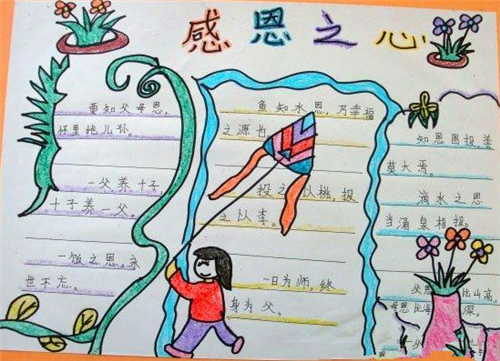 感恩之心
要知父母恩，
怀里抱儿孙。
一父养十子，
十子养一父。
一饭之恩，永
世不忘。
鱼知水恩，乃幸福
之源也
投之以桃，报
之以李。
一日为师，终
身为父。
知恩图报善
莫大焉。
滴水之恩
当涌泉相报。
父恩比山高
母恩比海深。